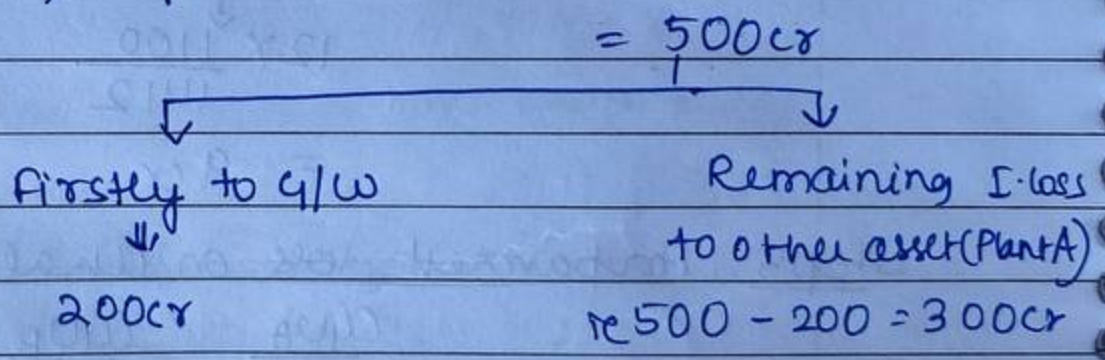 = 500cr
Firstly to G/W
Remaining I.loss
to other asset (Plant A)
200cr
ie 500 - 200 = 300cr